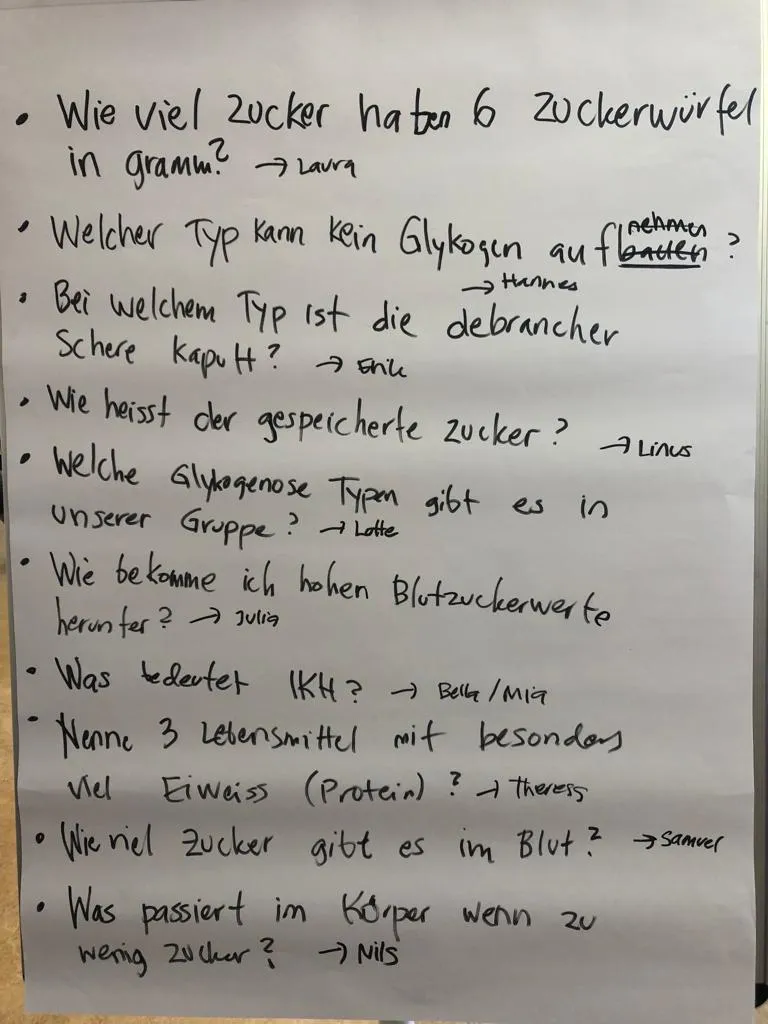 • Wie viel Zucker haben 6 Zuckerwürfel
in gramm? → Laura
• Welcher Typ kann kein Glykogen aufbauen nehmen ?
→ Hannes
• Bei welchem Typ ist die debrancher
Schere kaputt? → Erik
• Wie heisst der gespeicherte Zucker? → Linus
• Welche Glykogenose Typen gibt es in
unserer Gruppe? → Lotte
• Wie bekomme ich hohen Blutzuckerwerte
herunter? → Julia
• Was bedeutet IKH? → Bella/Mia
• Nenne 3 Lebensmittel mit besonders
viel Eiweiss (Protein)? → Theress
• Wie viel Zucker gibt es im Blut? → Samuel
• Was passiert im Körper wenn zu
wenig Zucker? → Nils